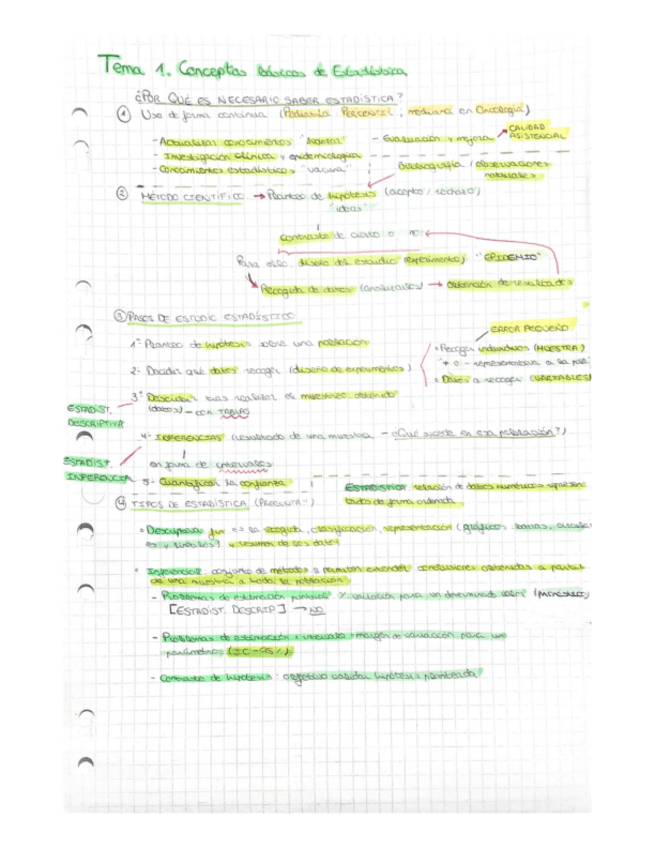 Tema 1. Conceptos Básicos de Estadística
¿POR QUÉ ES NECESARIO SABER ESTADÍSTICA?
① Uso de forma continua (Pediatría Percentil, mediana en Oncología)
- Actualizar conocimientos "Avanzar"
- Evaluación y mejora → CALIDAD ASISTENCIAL
- Investigación clínica y epidemiológica
- Conocimiento estadístico "vacuna"
Bibliografía / observaciones
② MÉTODO CIENTÍFICO → Planteo de hipótesis (acepto / rechazo)
"ideas"
Contraste de cierto o no
Para ello: diseño del estudio (experimento) "EPIDEMIO"
Recogida de datos (analizarlos) → Obtención de resultados
③ PASOS DE ESTUDIO ESTADÍSTICO
ERROR PEQUEÑO
1º Planteo de hipótesis sobre una población
• Recoger individuos (MUESTRA)
+ o - representativa a la
2º Decidir qué datos recoger (diseño de experimentos)
• Datos a recoger (VARIABLES)
3º Describir tras realizar el muestreo obtenido
(datos) - CON TABLAS
ESTADIST. DESCRIPTIVA
4º INFERENCIAS (resultado de una muestra - ¿Qué sucede en esa población?)
en forma de intervalos
ESTADIST. INFERENCIA
5º Cuantificar la confianza
ESTADÍSTICA: relación de datos numéricos
datos de forma ordenada
④ TIPOS DE ESTADÍSTICA (PREGUNTA)
• Descriptiva: fin => la recogida, clasificación, representación (gráficos barras,
y tablas) y resumen de los datos
• Inferencial: conjunto de métodos q permiten extender conclusiones obtenidas a partir
de una muestra a toda la población
- Problemas de estimación puntual: % valoración para un determinado
[ESTADIST. DESCRIP] → NO
- Problemas de estimación x intervalo: margen de variación para un
parámetro (IC - 95%)
- Contraste de hipótesis: objetivo validar hipótesis planteada